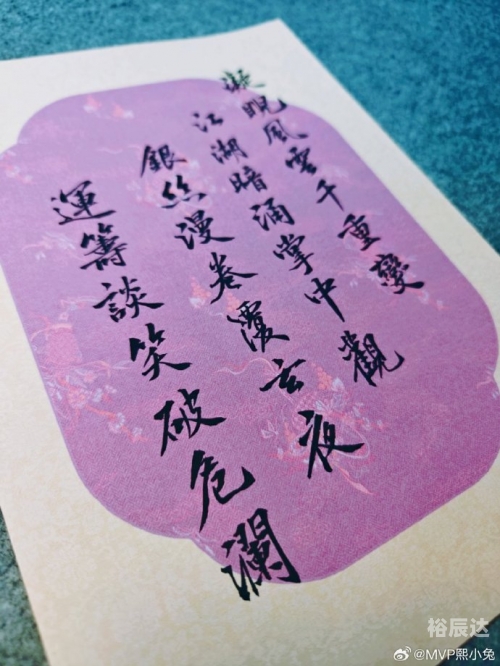 凝睨風雲千重變
江湖暗涌掌中觀
銀丝漫卷覆玄夜
運籌談笑破危瀾
裕辰达
@MVP熙小兔